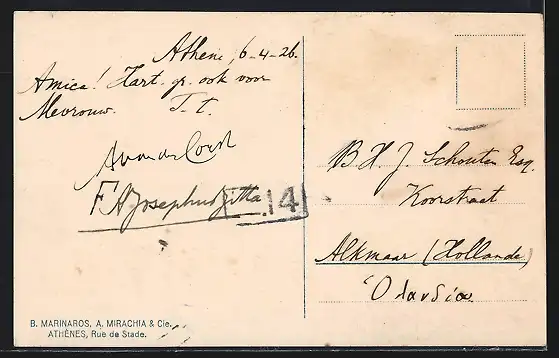 Athene, 6-4-26.
Amice! Hart. gr. ook voor
Mevrouw. T. t.
A van der Coorst
F. A. Josephus Jitta
14
B. H. J. Schouten Esq.
Koorstraat
Alkmaar (Hollande)
Ολανδία
B. MARINAROS, A. MIRACHIA & Cie.
ATHÈNES, Rue de Stade.